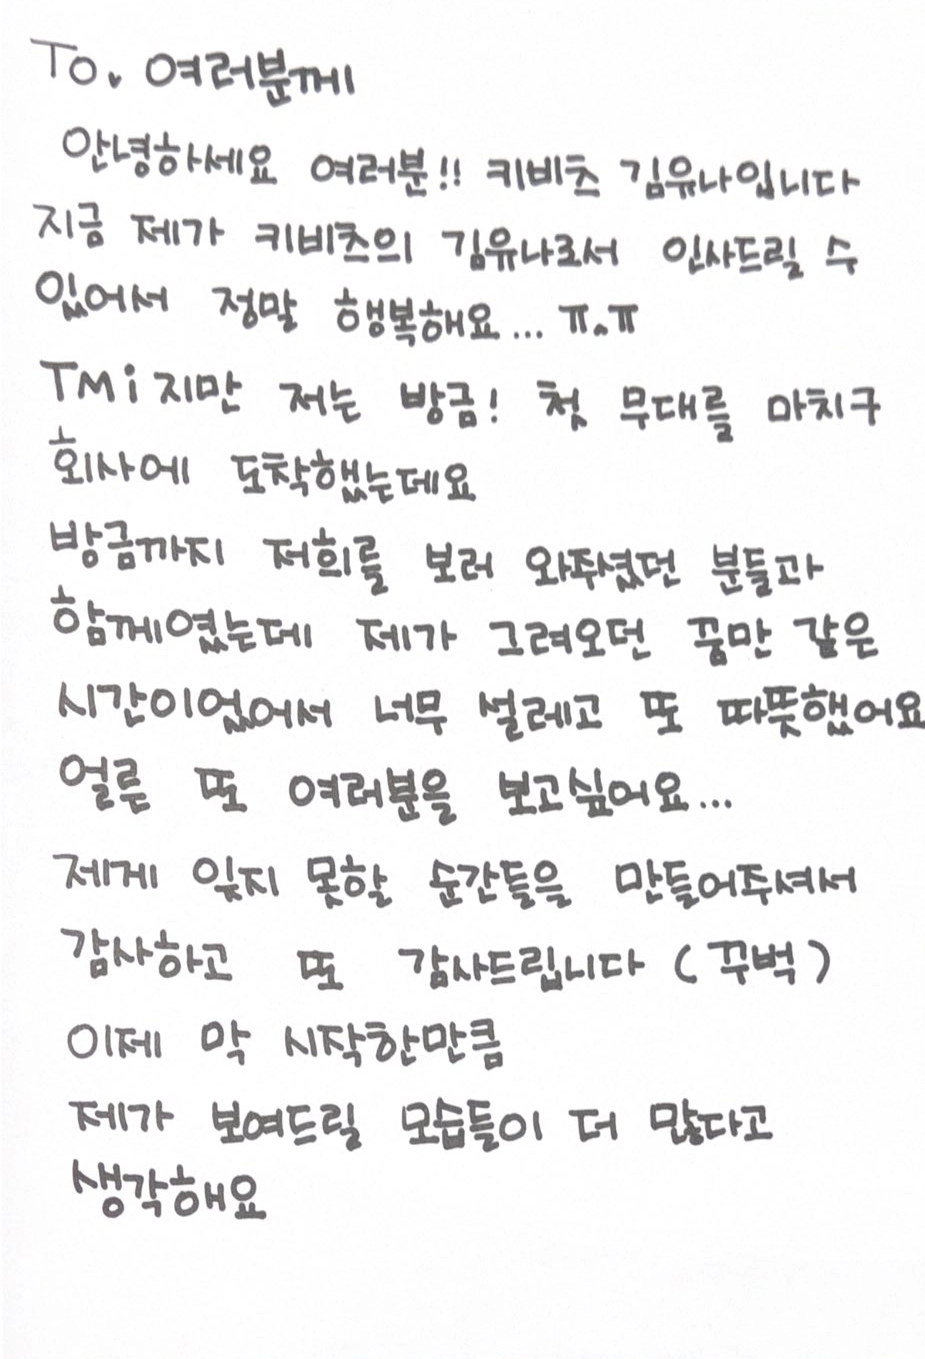 To. 여러분께
안녕하세요 여러분!! 키비츠 김유나입니다
지금 제가 키비츠의 김유나로서 인사드릴 수
있어서 정말 행복해요... ㅠ.ㅠ
TMi지만 저는 방금! 첫 무대를 마치구
회사에 도착했는데요
방금까지 저희를 보러 와주셨던 분들과
함께였는데 제가 그려오던 꿈만 같은
시간이었어서 너무 설레고 또 따뜻했어요
얼른 또 여러분을 보고싶어요...
제게 잊지 못할 순간들을 만들어주셔서
감사하고 또 감사드립니다 (꾸벅)
이제 막 시작한만큼
제가 보여드릴 모습들이 더 많다고
생각해요